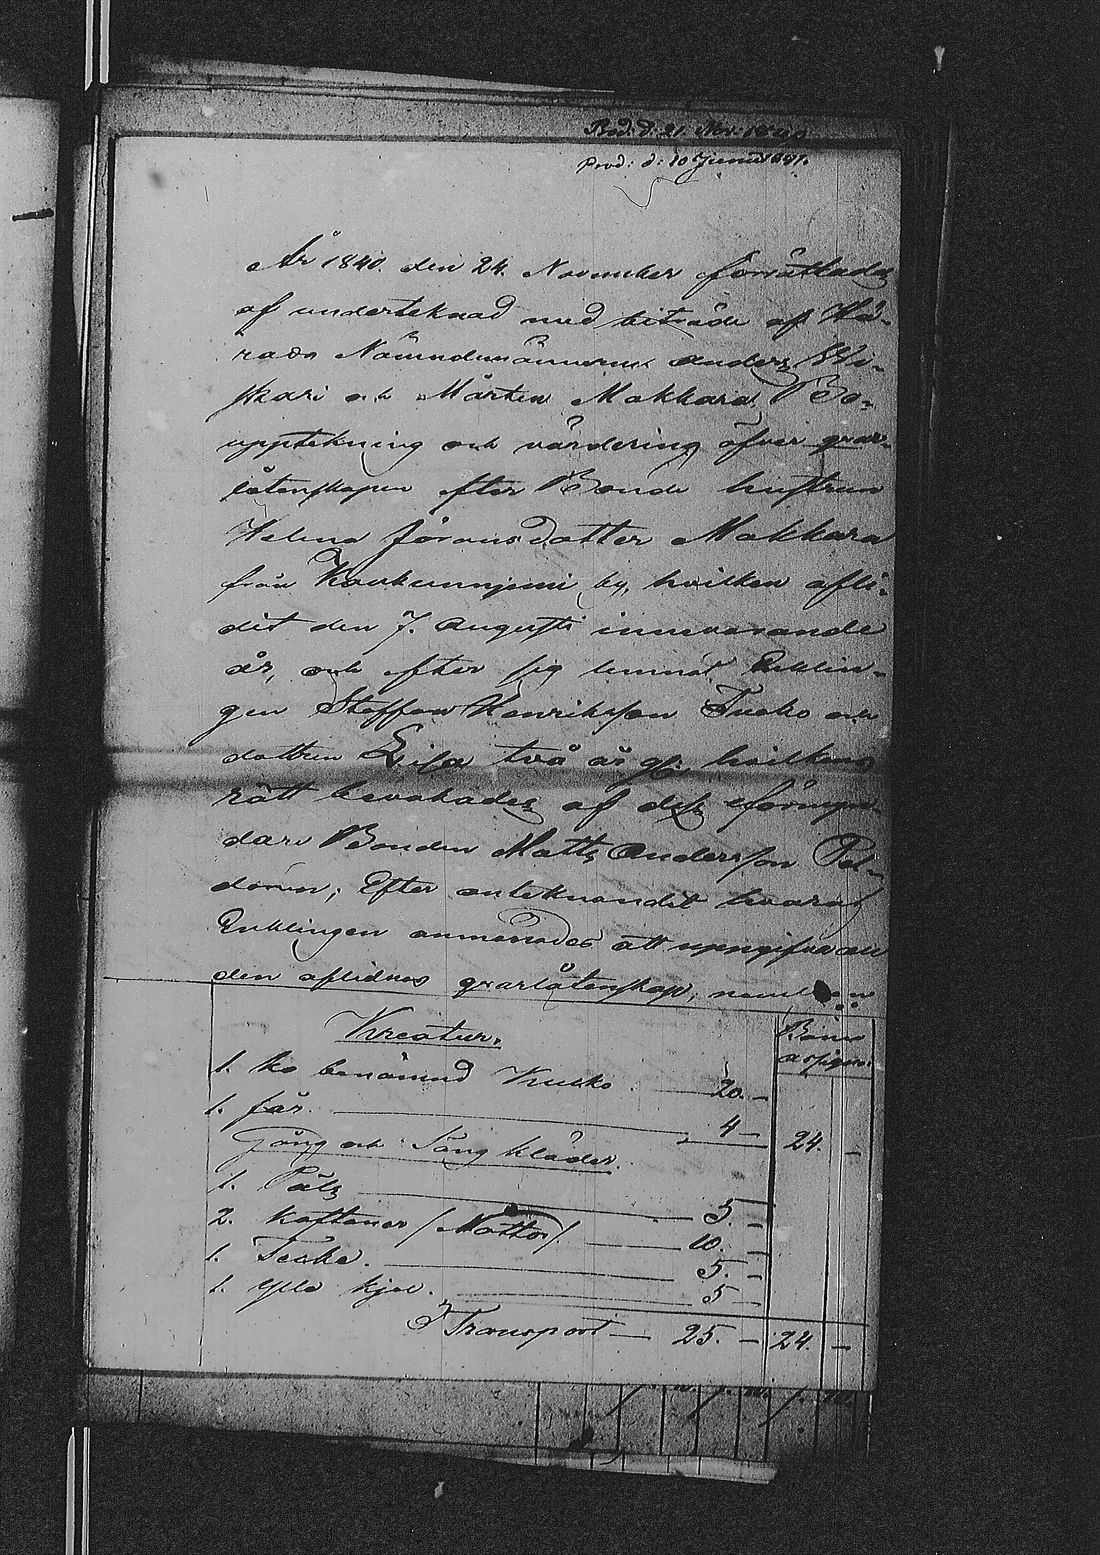 Prod: d: 21. Nov: 1840
Prod: d: 10 Junii 1841.
År 1840. den 24. November förrättades
af underteknad med biträde af Hä-
rads Nämndemännerne Anders
skari och Mårten Makkara, Bo-
uppteckning och värdering öfver qvar-
låtenskapen efter Bonde hustrun
Helena Jöransdotter Makkara
från Kaukunnjemi by, hvilken afli-
dit den 7. Augusti innevarande
år, och efter sig lemnat Enklin-
gen Staffan Henriksson Tusko och
dottren Lisa två år gl: hvilkens
rätt bevakades af dess förmyn-
dare Bonden Matts Andersson Pel-
donen; Efter anteknandet hvaraf
Enklingen anmanades att uppgifva all
den aflidnes qvarlåtenskap, nemligen
Kreatur.
Börns
assign:
1. ko benämnd Kusko 20. -
1. får. 4 - 24. -
Gång och Säng kläder.
1. Päls 5. -
2. kaftaner / Mötto / 10. -
1. Teoke. 5. -
1. Ylle kjol. 5 -
Transport - 25. - 24. -